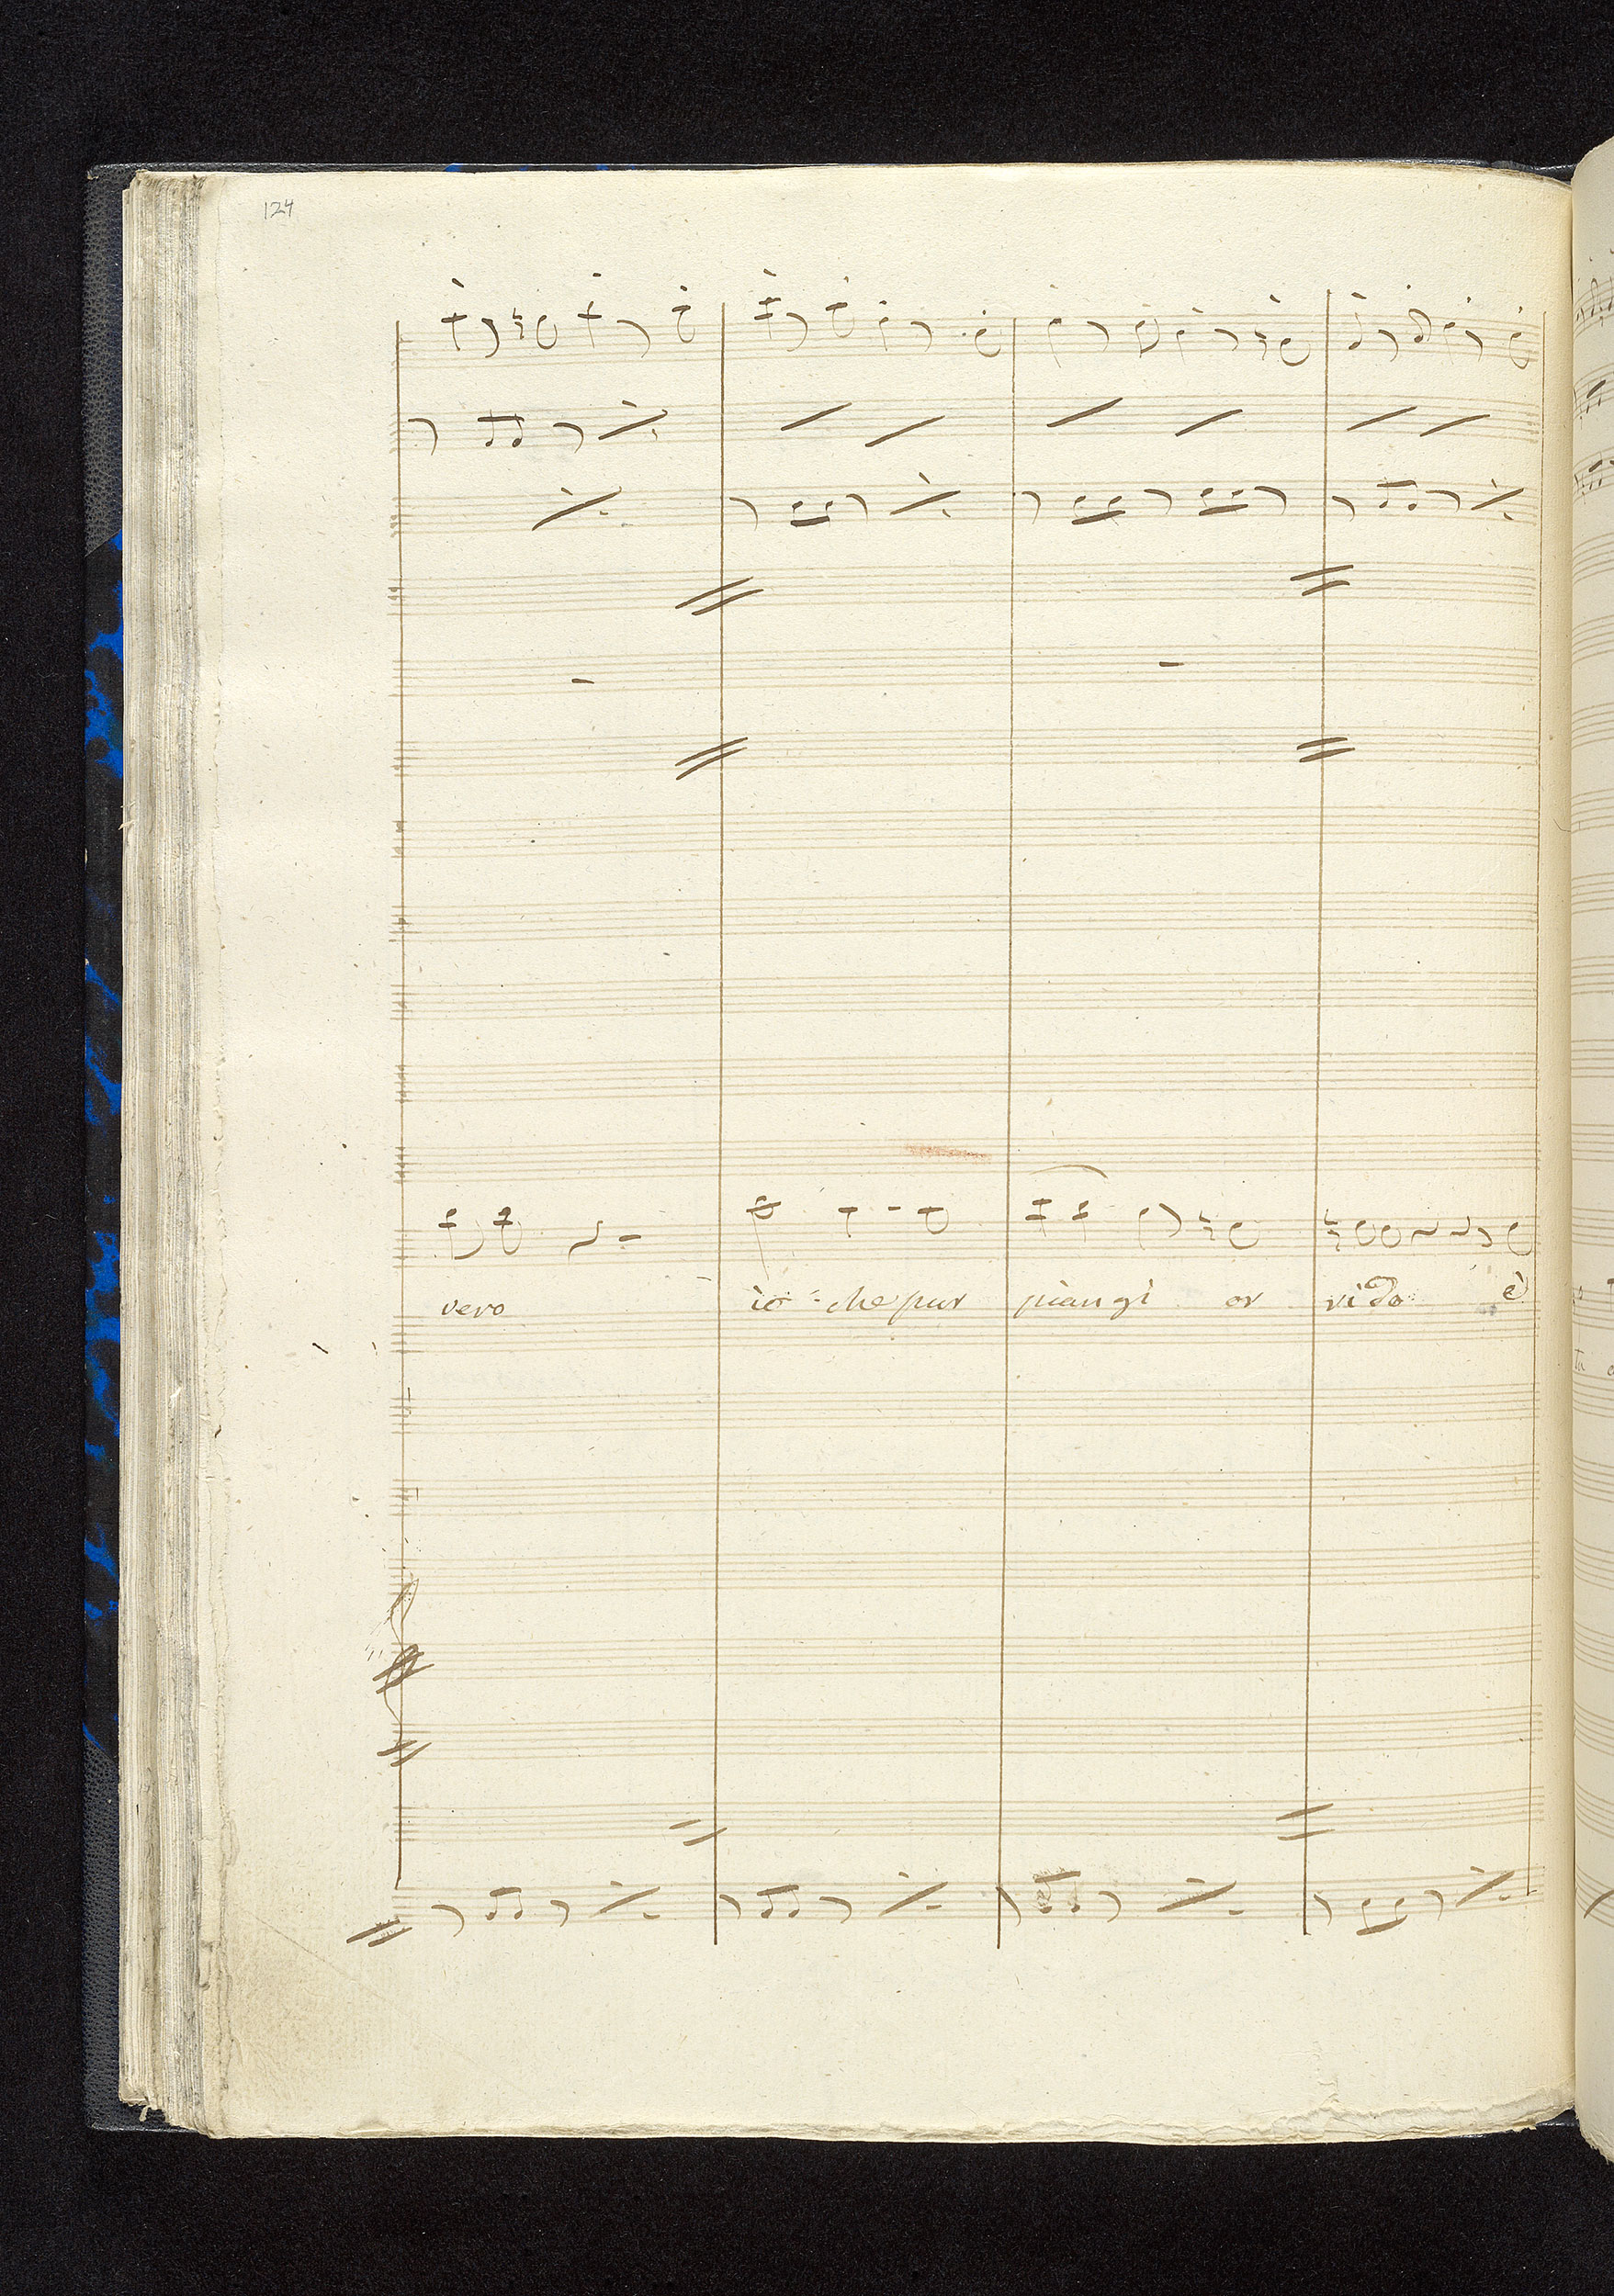 124
vero io che pur piangi or rido è